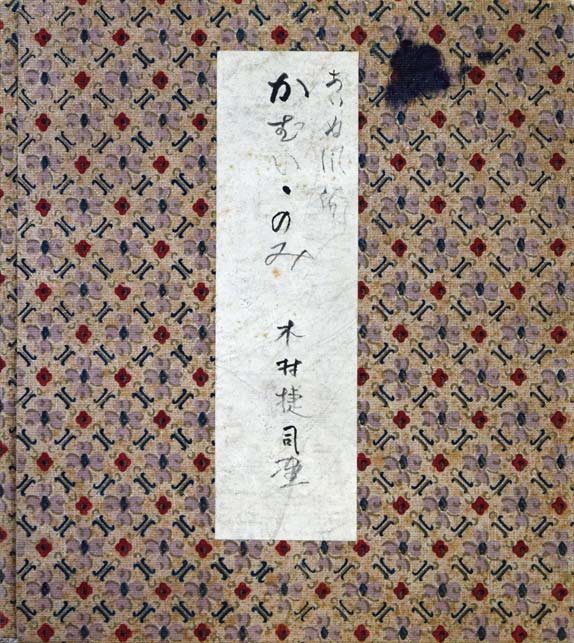 あいぬ風俗
かむい、のみ
木村捷司畫